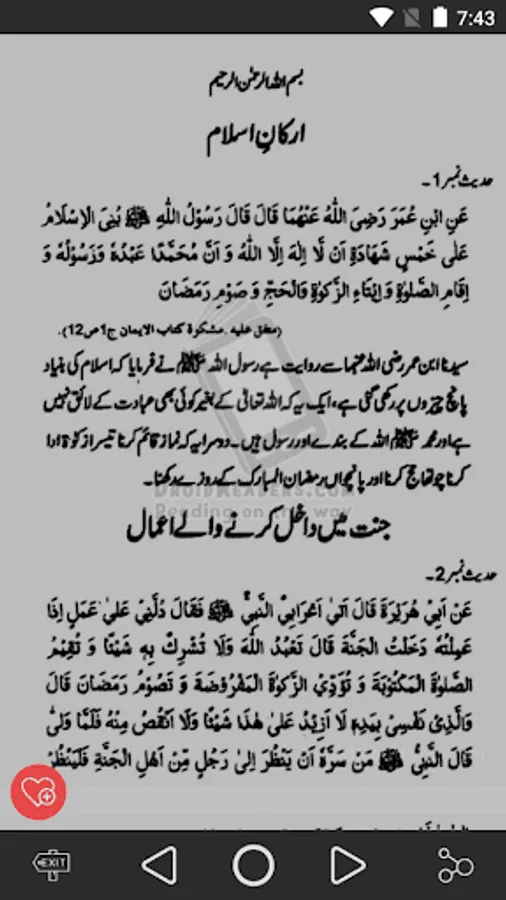 7:43
بسم اللہ الرحمٰن الرحیم
ارکانِ اسلام
حدیث نمبر 1۔
عَنِ ابْنِ عُمَرَ رَضِیَ اللّٰہُ عَنْہُمَا قَالَ قَالَ رَسُوْلُ اللّٰہِ ﷺ بُنِیَ الْاِسْلَامُ
عَلٰی خَمْسٍ شَھَادَۃِ اَنْ لَّا اِلٰہَ اِلَّا اللّٰہُ وَ اَنَّ مُحَمَّدًا عَبْدُہٗ وَرَسُوْلُہٗ وَ
اِقَامِ الصَّلٰوۃِ وَ اِیْتَاءِ الزَّکٰوۃِ وَالْحَجِّ وَ صَوْمِ رَمَضَانَ
(متفق علیہ۔ مشکوۃ کتاب الایمان ج1ص12)۔
سیدنا ابن عمر رضی اللہ عنہما سے روایت ہے رسول اللہ ﷺ نے فرمایا کہ اسلام کی بنیاد
پانچ چیزوں پر رکھی گئی ہے، ایک یہ کہ اللہ تعالیٰ کے بغیر کوئی بھی عبادت کے لائق نہیں
ہے اور محمد ﷺ اللہ کے بندے اور رسول ہیں۔ دوسرا یہ کہ نماز قائم کرنا تیسرا زکوٰۃ ادا
کرنا چوتھا حج کرنا اور پانچواں رمضان المبارک کے روزے رکھنا۔
DROIDREADERS.COM
Reading on the way
جنت میں داخل کرنے والے اعمال
حدیث نمبر 2۔
عَنْ اَبِیْ ھُرَیْرَۃَ قَالَ اَتیٰ اَعْرَابِیٌّ النَّبِیَّ ﷺ فَقَالَ دُلَّنِیْ عَلیٰ عَمَلٍ اِذَا
عَمِلْتُہٗ دَخَلْتُ الْجَنَّۃَ قَالَ تَعْبُدُ اللّٰہَ وَلَا تُشْرِکْ بِہٖ شَیْئًا وَ تُقِیْمُ
الصَّلوٰۃَ الْمَکْتُوْبَۃَ وَ تُؤَدِّیْ الزَّکوٰۃَ الْمَفْرُوْضَۃَ وَ تَصُوْمُ رَمَضَانَ قَالَ
وَالَّذِیْ نَفْسِیْ بِیَدِہٖ لَا اَزِیْدُ عَلیٰ ھٰذَا شَیْئًا وَلَا اَنْقُصُ مِنْہُ فَلَمَّا وَلّیٰ
قَالَ النَّبِیُّ ﷺ مَنْ سَرَّہٗ اَنْ یَّنْظُرَ اِلیٰ رَجُلٍ مِّنْ اَھْلِ الْجَنَّۃِ فَلْیَنْظُرْ
EXIT